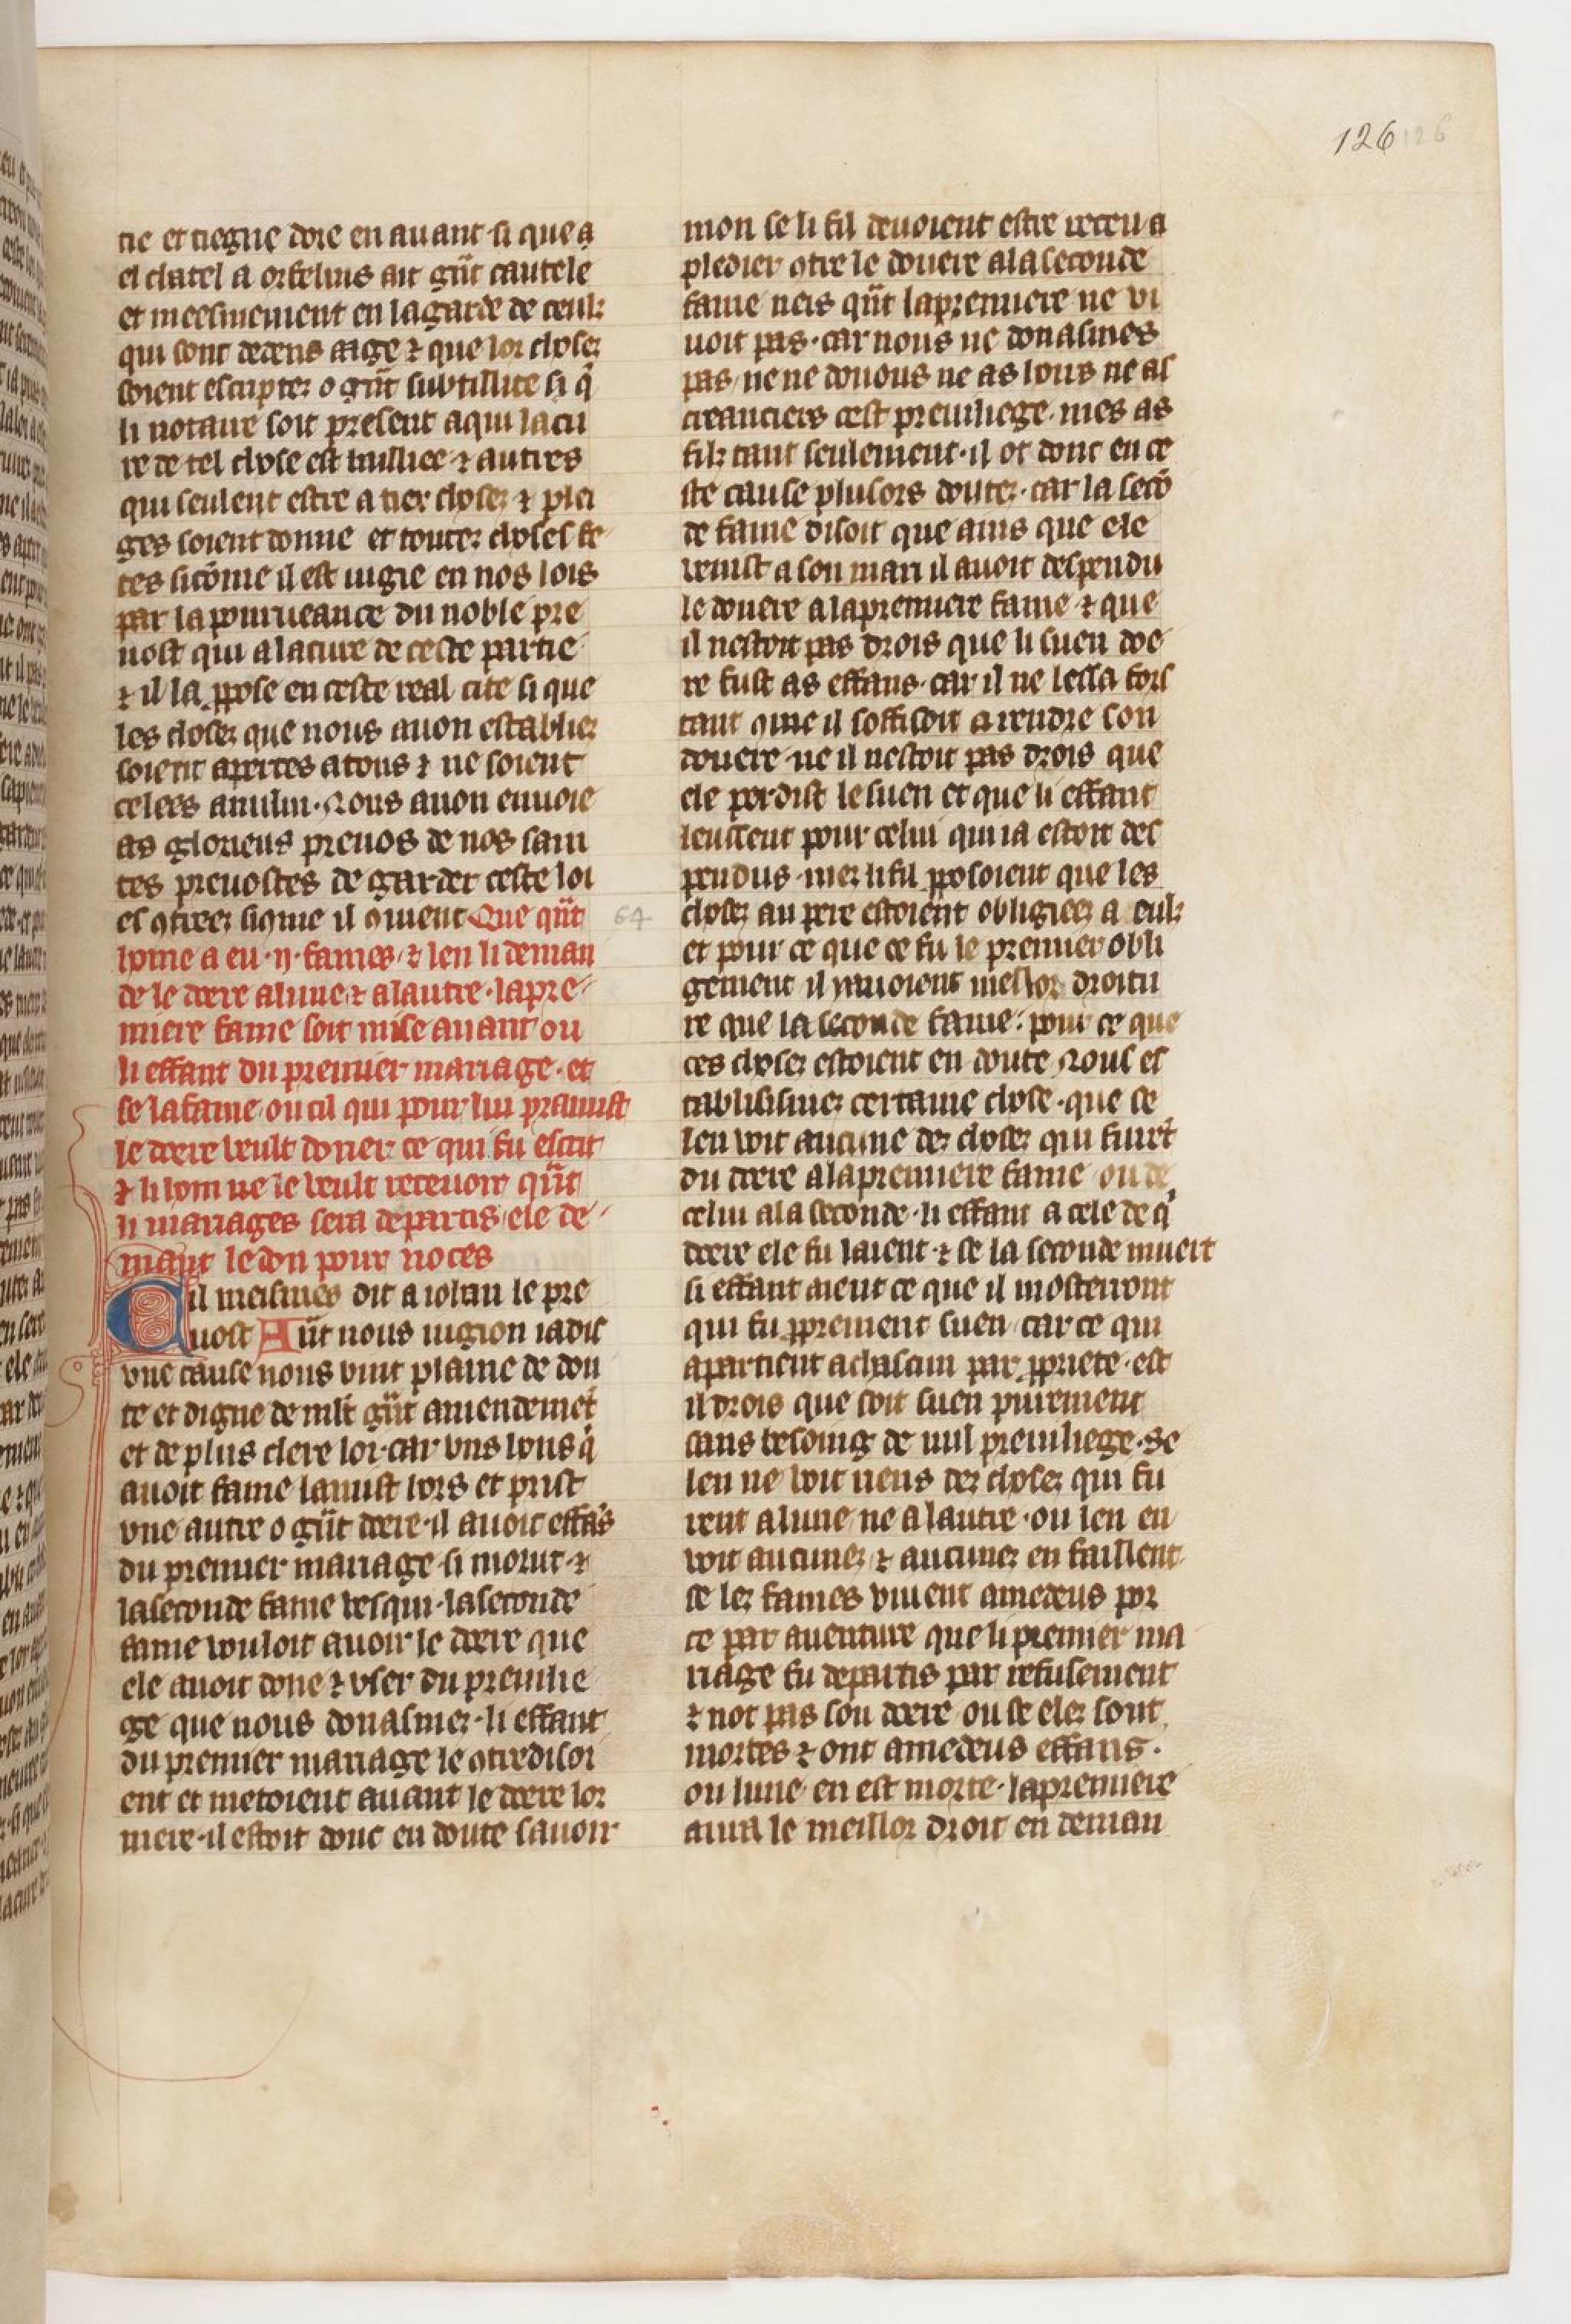 126 126
tie et tiegne dore en auant · si que a
el chatel a orfelins ait gñt cautele
et meesmement en la garde de ceulz
qui sont dedens aage ⁊ que lor chosez
soient escriptez o gñt subtillite si q̃
li notaire soit present a qui la cu
re de tel chose est bailliee ⁊ autres
qui seulent estre a tiex chosez ⁊ plei
ges soient donne et toutez choses fe
tes sicõme il est iugie en nos lois
par la pourueance du noble pre
uost qui a la cure de ceste partie
⁊ il la ppose en ceste real cite si que
les chosez que nous auon establiez
soient apertes a tous ⁊ ne soient
celees a nului · Nous auon enuoie
as glorieus preuos de nos sain
tes preuostes de garder ceste loi
es ꝯtreez siꝯme il ꝯuient Que qñt
home a eu · ij · fames ⁊ len li deman
de le doere a lune ⁊ a lautre · la pre
miere fame soit mise auant ou
li effant du premier mariage · et
se la fame ou cil qui pour lui pramist
le doere veult doner ce qui fu escrit
⁊ li hom ne le veult receuoir qñt
li mariages sera departis ele de
mant le don pour noces
Cil meismes dit a iohan le pre
uost Qñt nous iugion iadis
vne cause nous vint plaine de dou
te et digne de mlt gñt amendemẽt
et de plus clere loi · car vns hons q̃
auoit fame laiuist hors et prist
vne autre o gñt doere · il auoit effãs
du premier mariage · si morut · ⁊
la seconde fame vesqui · la seconde
fame vouloit auoir le doere que
ele auoit done ⁊ vser du preuilie
ge que nous donasmez · li effant
du premier mariage le ꝯtredisoi
ent et metoient auant le doere lor
mere · il estoit donc en doute sauoir
64
mon se li fil deuoient estre receu a
pledier ꝯtre le douere a la seconde
fame neis qñt la premiere ne vi
uoit pas · car nous ne donasmes
pas ne ne donous ne as hons ne as
creanciers cest preuiliege · mes as
filz tant seulement · il ot donc en ce
ste cause plusors doutez · car la secõ
de fame disoit que ains que ele
venist a son mari il auoit despendu
le douere a la premiere fame ⁊ que
il nestoit pas drois que li suen doe
re fust as effans · car il ne lessa fors
tant ꝯme il soffisoit a rendre son
douere · ne il nestoit pas drois que
ele perdist le suen et que li effant
leussent pour celui qui ia estoit des
pendus · mez li fil pposoient que les
chosez au pere estoient obligiees a eulz
et pour ce que ce fu le premier obli
gement il y auoient mellor droitu
re que la seconde fame · pour ce que
ces chosez estoient en doute Nous es
tablisismez certaine chose · que se
len voit aucune dez chosez qui furẽt
du doere a la premiere fame ou de
celui a la seconde · li effant a cele de q̃
doere ele fu laient · ⁊ se la seconde muert
si effant aient ce que il mosterront
qui fu pprement suen car ce qui
apartient a chascun par ppriete · est
il drois que soit suen purement
sans besoing de nul preuiliege · Se
len ne voit riens dez chosez qui fu
rent a lune ne a lautre · ou len en
voit aucunez ⁊ aucunez en faillent
se lez fames viuent amedeus por
ce par auenture que li premier ma
riage fu departis par refusement
⁊ not pas son doere ou se elez sont
mortes ⁊ ont amedeus effans ·
ou lune en est morte · la premiere
aura le meillor droit en deman